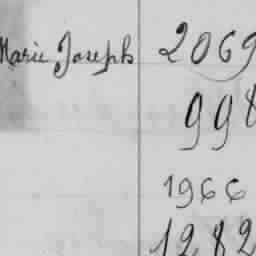 Marie Joseph 2069
998
1966
1282